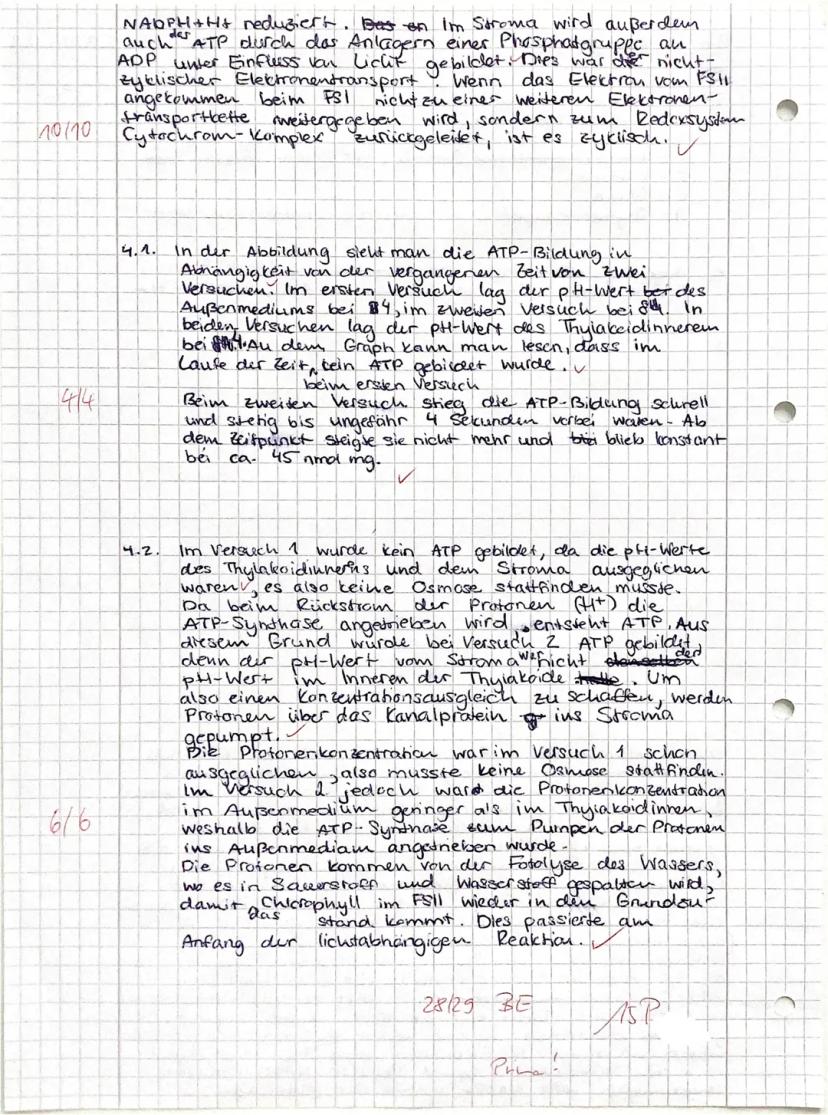 NADPH+H+ reduziert. Das en Im Stroma wird außerdem
auch das ATP durch das Anlagern einer Phosphatgruppe an
ADP unter Einfluss von Licht gebildet. Dies war der nicht-
zyklischer Elektronentransport. Wenn das Elektron vom FSII
angekommen beim FSI nicht zu einer weiteren Elektronen-
transportkette weitergegeben wird, sondern zum Redoxsystem
10/10 Cytochrom-Komplex zurückgeleitet, ist es zyklisch.
4.1. In der Abbildung sieht man die ATP-Bildung in
Abhängigkeit von der vergangenen Zeit von zwei
Versuchen. Im ersten Versuch lag der pH-Wert bei des
Außenmediums bei 4, im zweiten Versuch bei 84. In
beiden Versuchen lag der pH-Wert des Thylakoidinneren
bei 4. Au dem Graph kann man lesen, dass im
Laufe der Zeit, kein ATP gebildet wurde.
beim ersten Versuch
4/4 Beim zweiten Versuch stieg die ATP-Bildung schnell
und stetig bis ungefähr 4 Sekunden vorbei waren. Ab
dem Zeitpunkt steigte sie nicht mehr und blieb konstant
bei ca. 45 nmol mg.
4.2. Im Versuch 1 wurde kein ATP gebildet, da die pH-Werte
des Thylakoidinnerns und dem Stroma ausgeglichen
waren, es also keine Osmose stattfinden musste.
Da beim Rückstrom der Protonen (H+) die
ATP-Synthase angetrieben wird, entsteht ATP. Aus
diesem Grund wurde bei Versuch 2 ATP gebildet,
denn der pH-Wert vom Stroma war nicht der
pH-Wert im Inneren der Thylakoide. Um
also einen Konzentrationsausgleich zu schaffen, werden
Protonen über das Kanalprotein ins Stroma
gepumpt.
Die Protonenkonzentration war im Versuch 1 schon
ausgeglichen, also musste keine Osmose stattfinden.
Im Versuch 2 jedoch war die Protonenkonzentration
6/6 im Außenmedium geringer als im Thylakoidinnen,
weshalb die ATP-Synthase zum Pumpen der Protonen
ins Außenmedium angetrieben wurde.
Die Protonen kommen von der Fotolyse des Wassers,
wo es in Sauerstoff und Wasserstoff gespalten wird,
damit das Chlorophyll im FSII wieder in den Grundzu-
stand kommt. Dies passierte am
Anfang der lichtabhängigen Reaktion.
28/29 BE 15P
Prima!